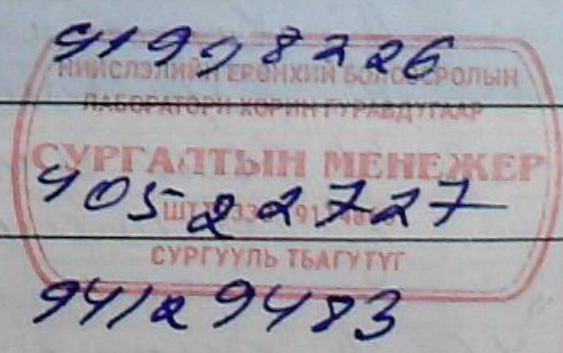 91998226
НИЙСЛЭЛИЙН ЕРӨНХИЙ БОЛОВСРОЛЫН
ЛАБОРАТОРИ ХОРИН ГУРАВДУГААР
СУРГАЛТЫН МЕНЕЖЕР
90522727
СУРГУУЛЬ ТБАГУТҮГ
94129483